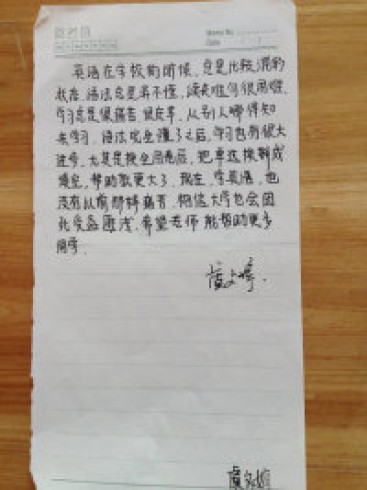 Memo No.
Date
英语在学校的时候,总是比较混的
状态.语法总是弄不懂,读起难句很困难.
学习总是很痛苦,很皮革.从别人哪得知
来学习.语法完全懂了之后,学习也有很大
进步.尤其是换全阅卷后,把单选换
填空,帮助就更大了.现在,学英语,也
没有以前那样痛苦.相信大学也会因
此受益匪浅.希望老师能帮助更多
同学.